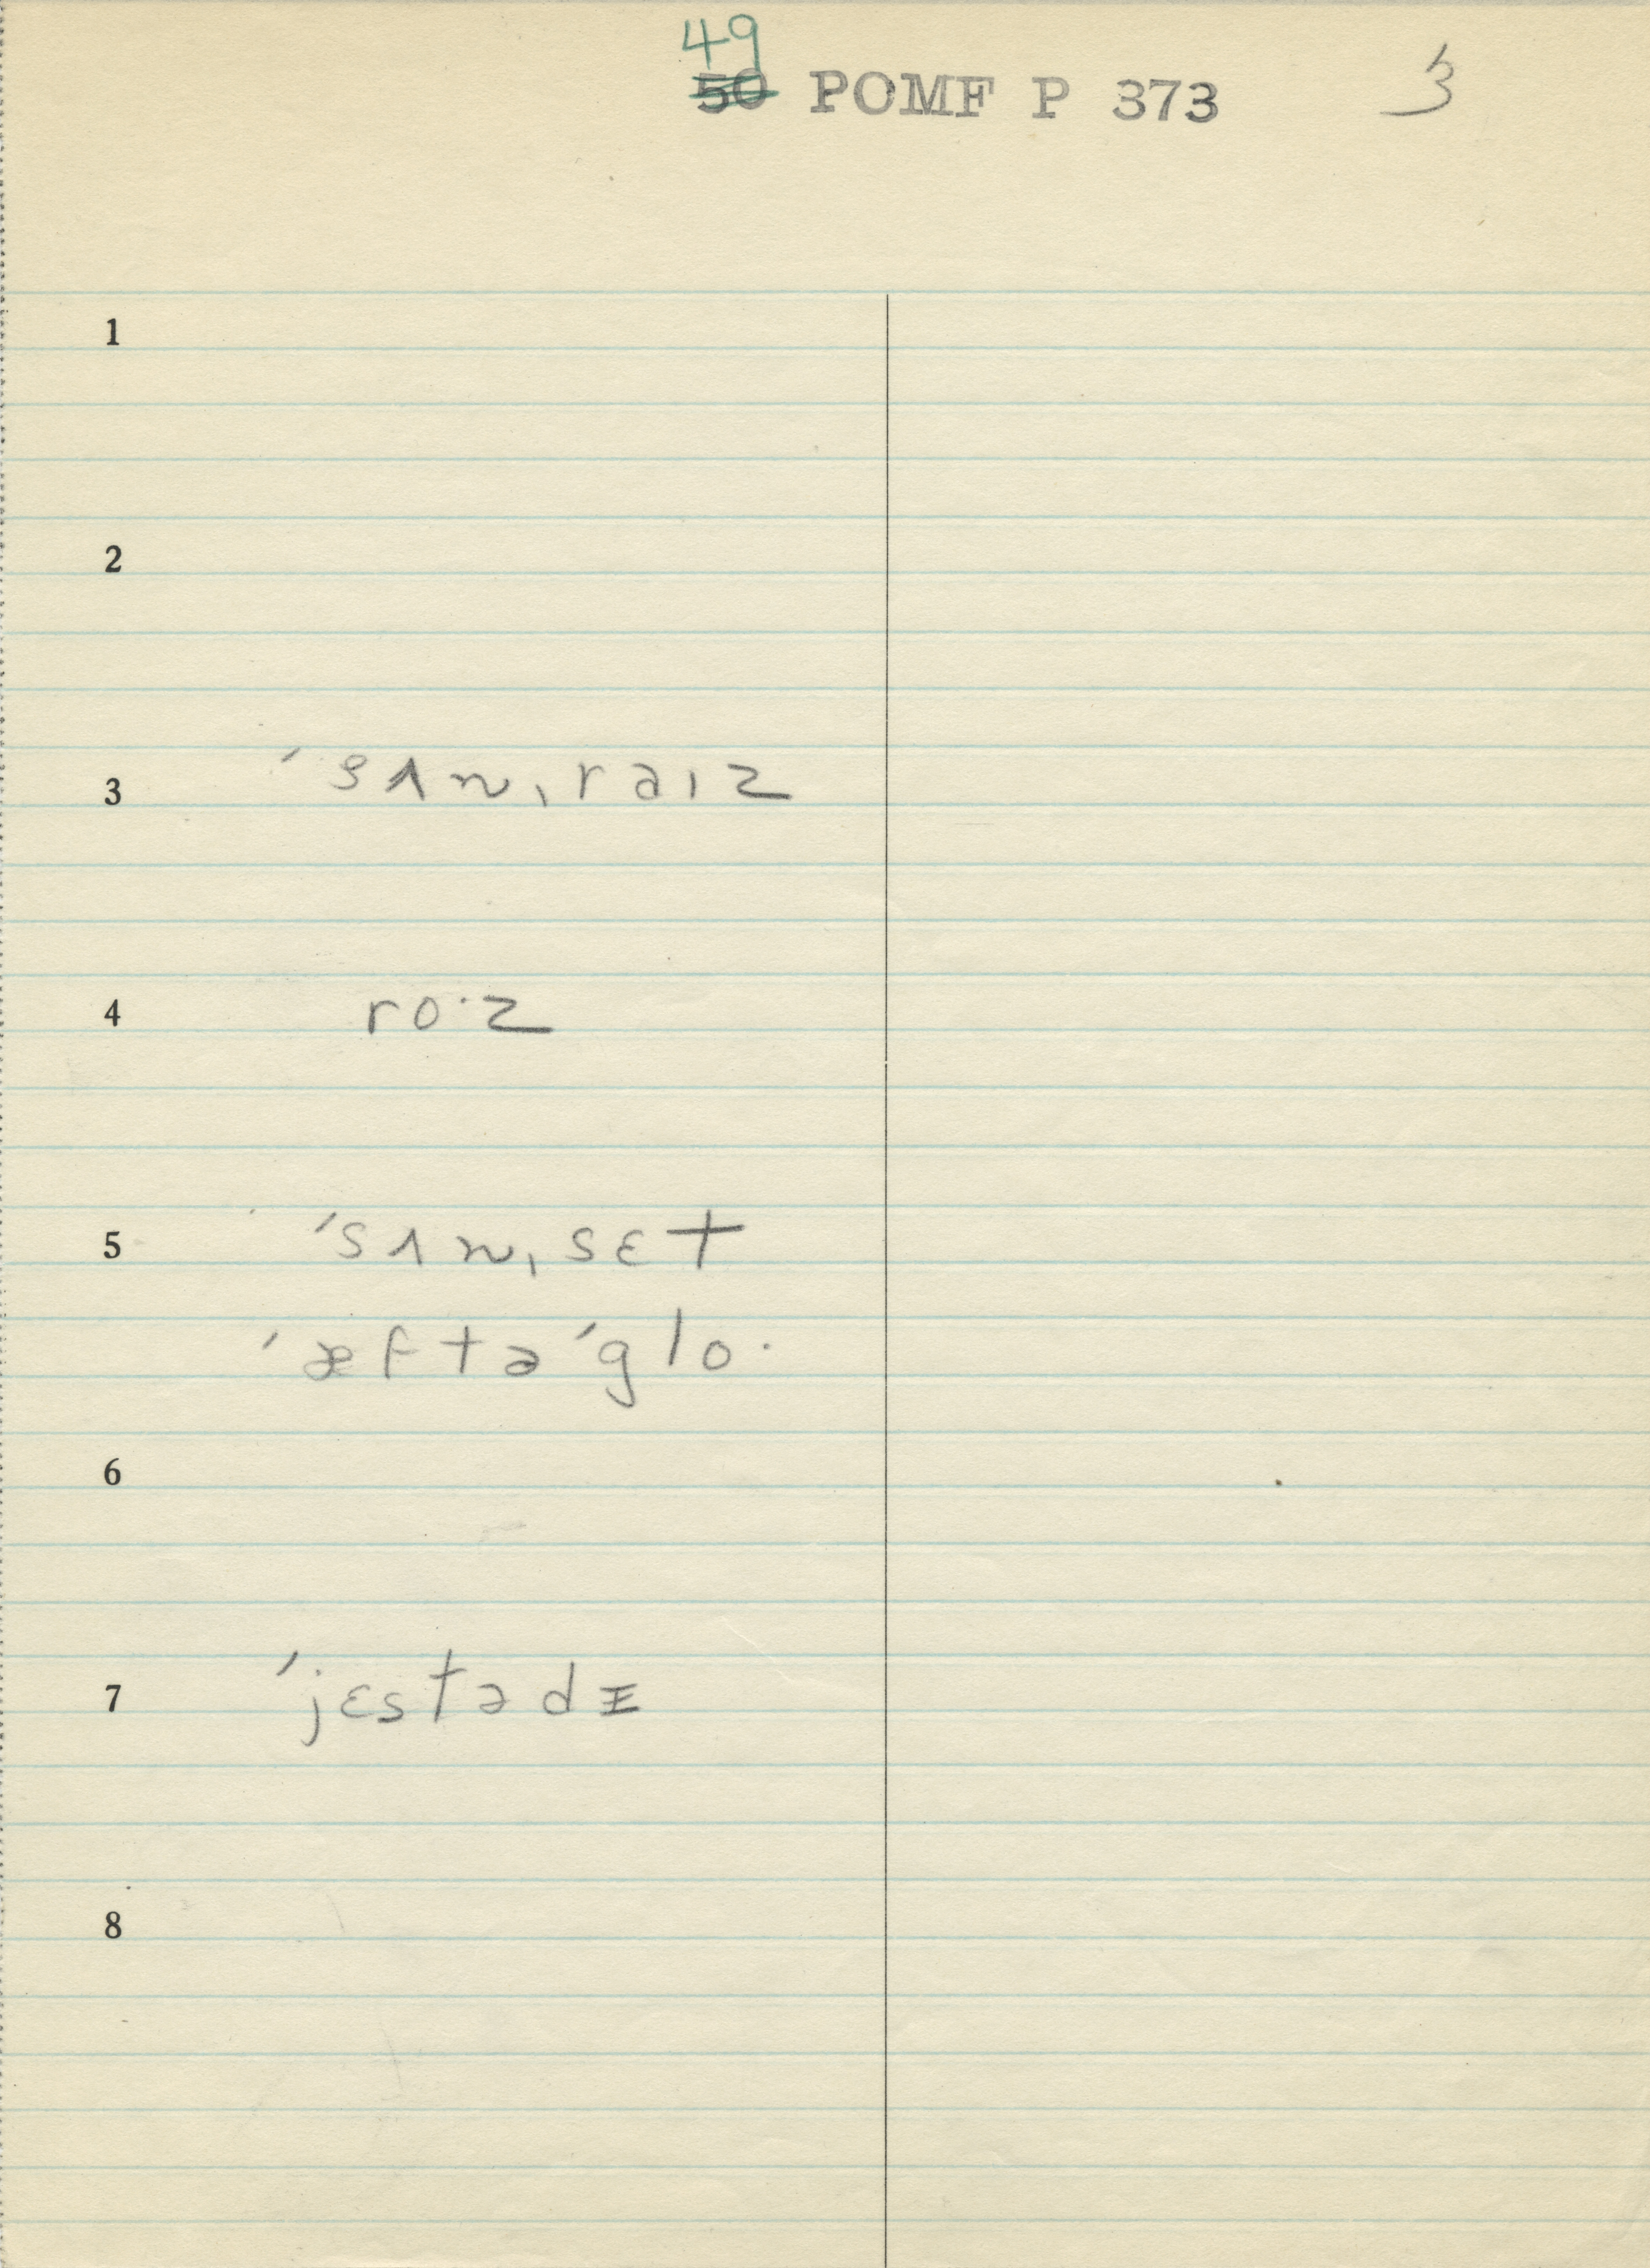 49
50 POMF P 373 3
1
2
3 ˈsʌnˌraɪz
4 ro·z
5 ˈsʌnˌsɛt
ˈæftəˈglo·
6
7 ˈjɛstədɪ
8